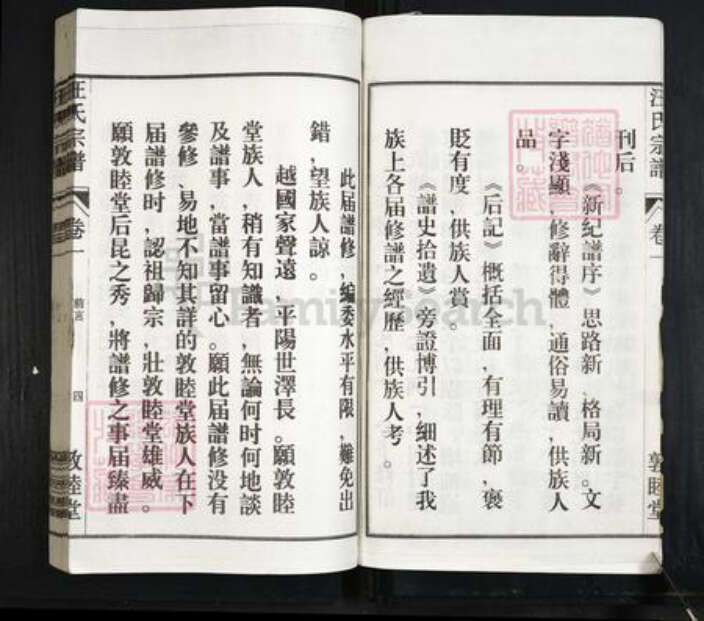 汪氏宗譜
卷一
敦睦堂
刊后。
《新纪譜序》思路新﹑格局新。文
字淺顯﹐修辭得體﹐通俗易讀﹐供族人
品。
《后記》概括全面﹐有理有節﹐褒
貶有度﹐供族人賞。
《譜史拾遺》旁證博引﹐細述了我
族上各届修譜之經歷﹐供族人考。
此届譜修﹐編委水平有限﹐難免出
錯﹐望族人諒。
越國家聲遠﹐平陽世澤長。願敦睦
堂族人﹐稍有知識者﹐無論何时何地談
及譜事﹐當譜事留心。願此届譜修没有
參修﹑易地不知其詳的敦睦堂族人在下
届譜修时﹐認祖歸宗﹐壯敦睦堂雄威。
願敦睦堂后昆之秀﹐將譜修之事届臻盡
汪氏宗譜
卷一
前言
四
敦睦堂
FamilySearch